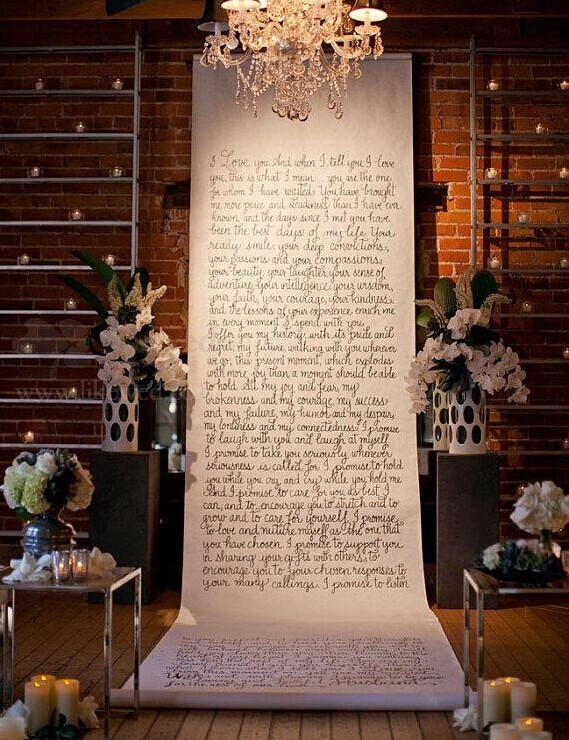 I Love you. And when I tell you I love
you, this is what I mean. you are the one
for whom I have waited. You have brought
me more peace and steadiness than I have ever
known and the days since I met you have
been the best days of my life. Your
ready smile, your deep convictions,
your passions and your compassions,
your beauty, your laughter, your sense of
adventure, your intelligence, your wisdom,
your faith, your courage, your kindness,
and the lessons of your experience, enrich me
in every moment I spend with you.
I offer you my history with its pride and
regret, my future, walking with you wherever
we go, this present moment, which explodes
with more joy than a moment should be able
to hold. All my joy and fear, my
brokenness and my courage, my success
and my failure, my humor and my despair,
my loneliness and my connectedness. I promise
to laugh with you and laugh at myself.
I promise to take you seriously whenever
seriousness is called for. I promise to hold
you while you cry and cry while you hold me
And I promise to care for you as best I
can, and to encourage you to stretch and to
grow and to care for yourself. I promise
to love and nurture myself as the one that
you have chosen. I promise to support you
in sharing your gifts with others, to
encourage you to your chosen responses to
your many callings. I promise to listen